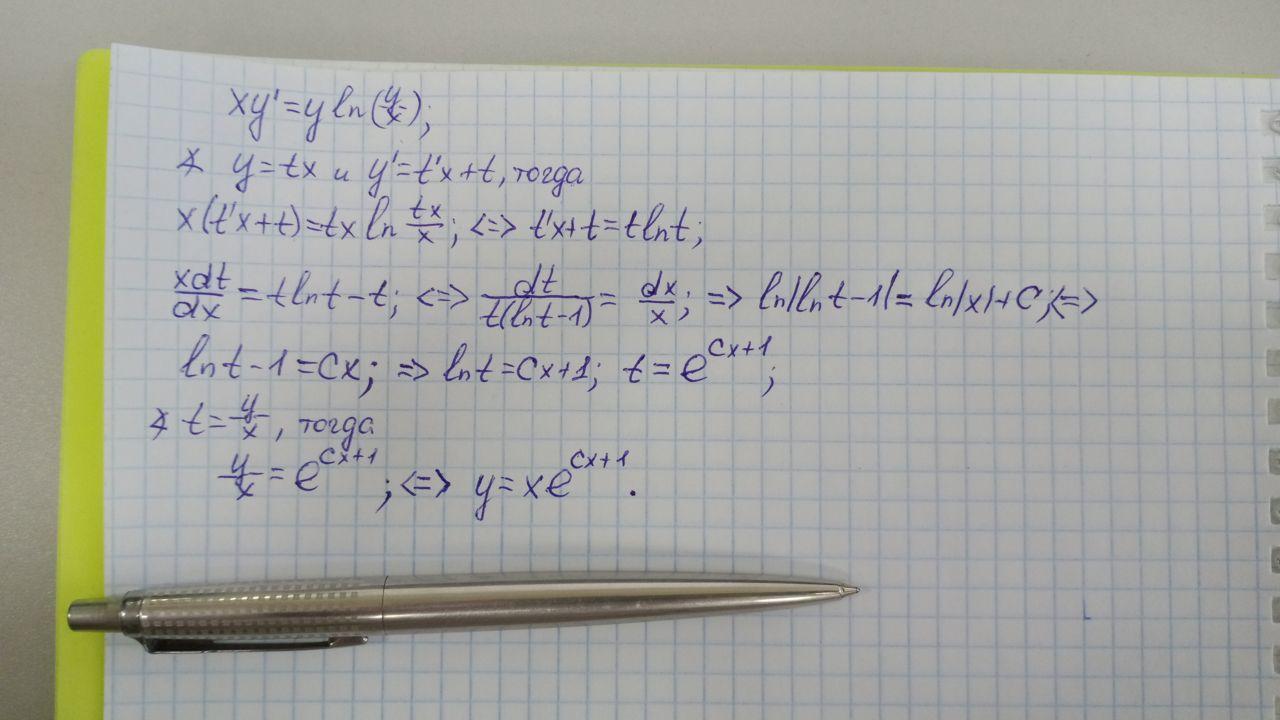 xy'=y ln(y/x);
∢ y=tx и y'=t'x+t, тогда
x(t'x+t)=tx ln tx/x; <=> t'x+t=t ln t;
xdt/dx = t ln t - t; <=> dt/t(ln t-1) = dx/x; => ln|ln t-1|= ln|x|+C; <=>
ln t-1=Cx; => ln t=Cx+1; t=e^{Cx+1};
∢ t=y/x, тогда
y/x=e^{Cx+1}; <=> y=xe^{Cx+1}.